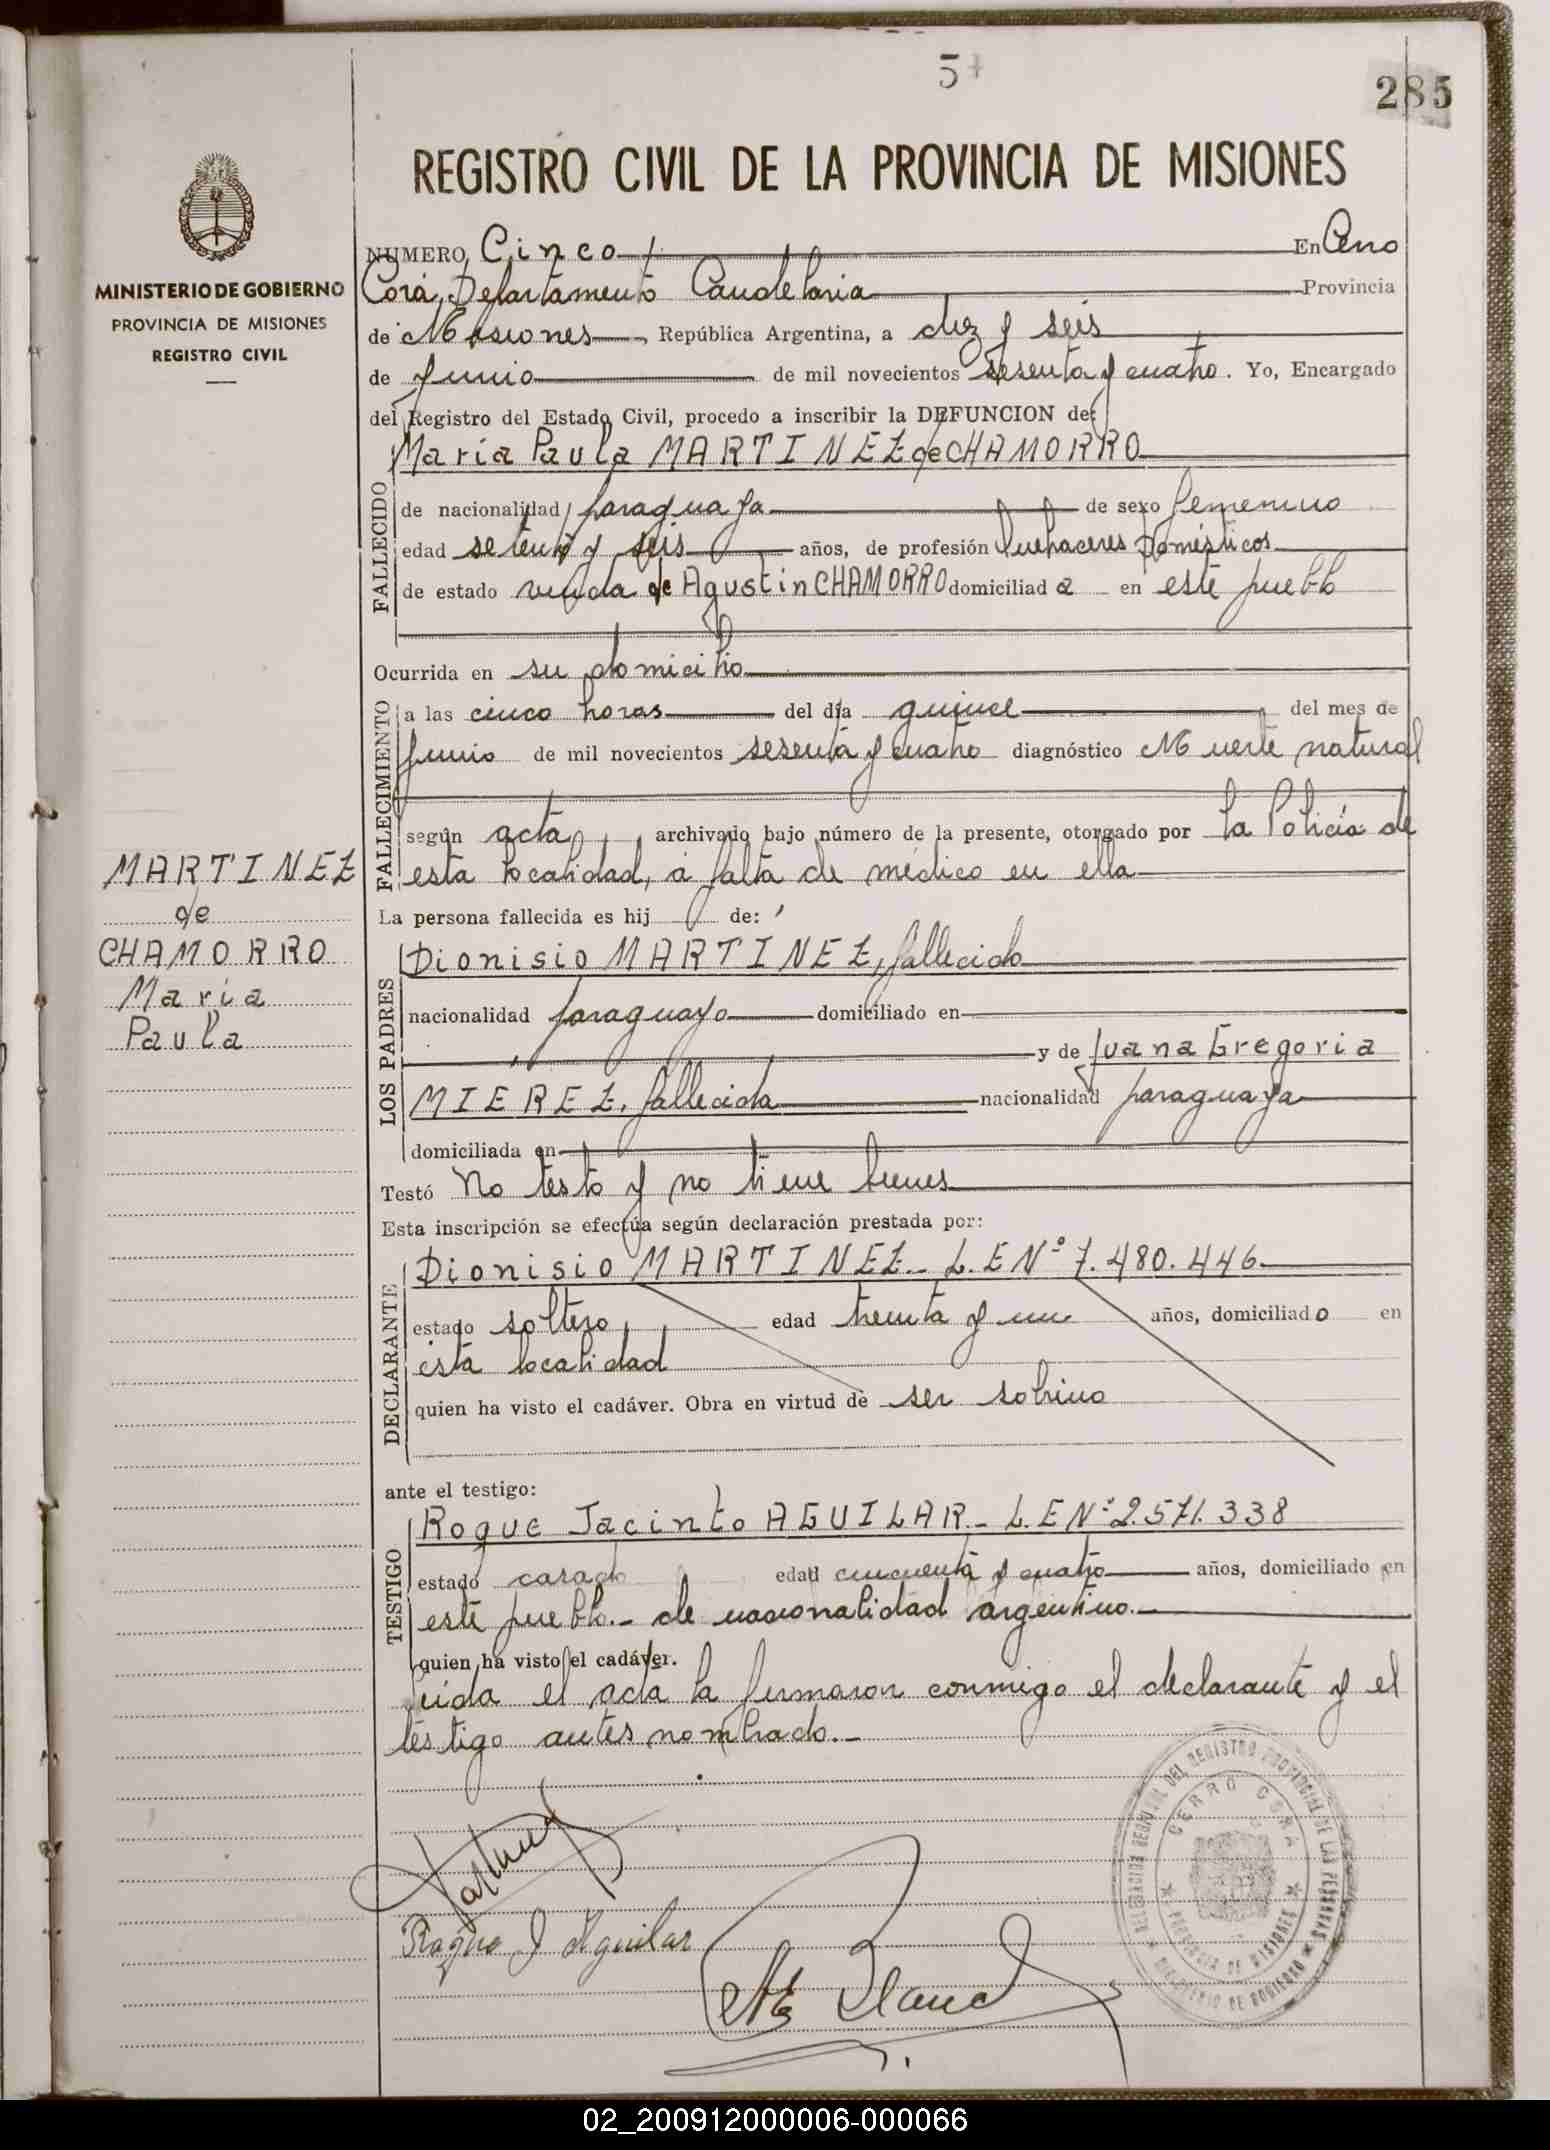 5
285
REGISTRO CIVIL DE LA PROVINCIA DE MISIONES
MINISTERIO DE GOBIERNO
PROVINCIA DE MISIONES
REGISTRO CIVIL
NUMERO Cinco En Cerro
Corá, Departamento Candelaria Provincia
de Misiones, República Argentina, a diez y seis
de Junio de mil novecientos sesenta y cuatro. Yo, Encargado
del Registro del Estado Civil, procedo a inscribir la DEFUNCION de:
María Paula MARTINEZ de CHAMORRO
FALLECIDO
de nacionalidad paraguaya de sexo femenino
edad setenta y seis años, de profesión Quehaceres Domésticos
de estado viuda de Agustin CHAMORRO domiciliad a en este pueblo
Ocurrida en su domicilio
FALLECIMIENTO
a las cinco horas del día quince del mes de
Junio de mil novecientos sesenta y cuatro diagnóstico Muerte natural
según acta archivado bajo número de la presente, otorgado por la Policía de
esta localidad, a falta de médico en ella
La persona fallecida es hij de:
LOS PADRES
Dionisio MARTINEZ, fallecido
nacionalidad paraguayo domiciliado en
y de Juana Gregoria
MIEREZ, fallecida nacionalidad paraguaya
domiciliada en
Testó No testo y no tiene bienes
Esta inscripción se efectúa según declaración prestada por:
DECLARANTE
Dionisio MARTINEZ - L.E Nº 7.480.446
estado soltero edad treinta y un años, domiciliado en
esta localidad
quien ha visto el cadáver. Obra en virtud de ser sobrino
ante el testigo:
TESTIGO
Roque Jacinto AGUILAR.- L.E Nº 2.571.338
estado casado edad cincuenta y cuatro años, domiciliado en
este pueblo.- de nacionalidad argentino.-
quien ha visto el cadáver.
Leida el acta la firmaron conmigo el declarante y el
testigo antes nombrado.-
MARTINEZ
de
CHAMORRO
María
Paula
Martinez
Roque J Aguilar
DELEGACION SECCIONAL DEL REGISTRO PROVINCIAL DE LAS PERSONAS
CERRO CORA
PROVINCIA DE MISIONES
MINISTERIO DE GOBIERNO
02_200912000006-000066